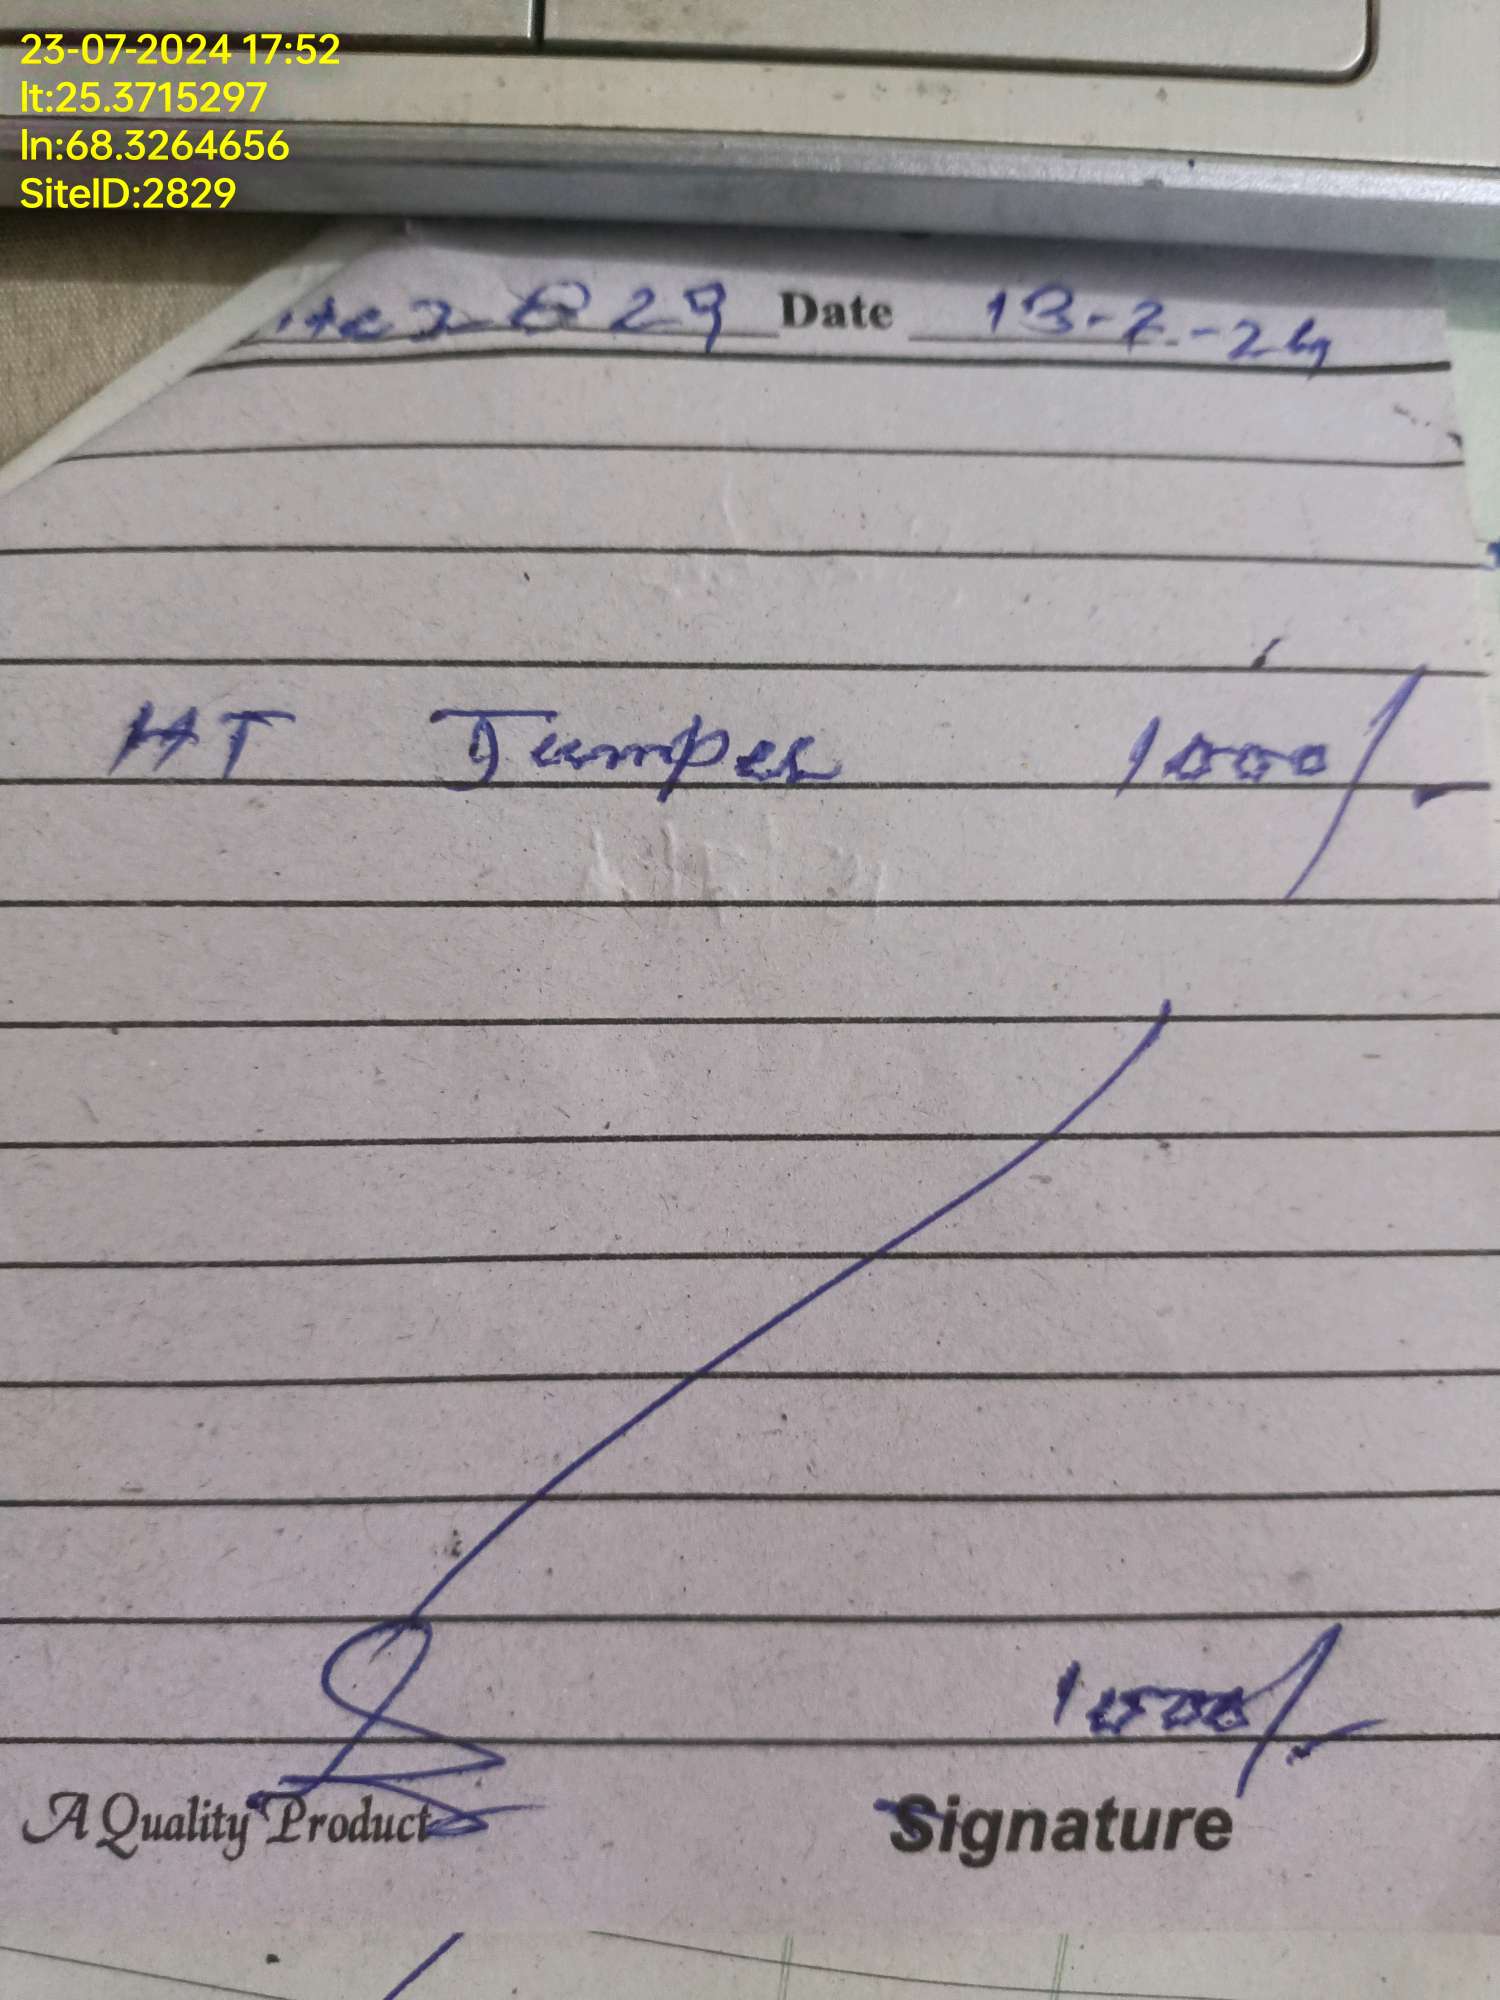 23-07-2024 17:52
lt:25.3715297
ln:68.3264656
SiteID:2829
ite 2829 Date 13-7-24
HT Jumper 1000/-
1000/-
A Quality Product Signature